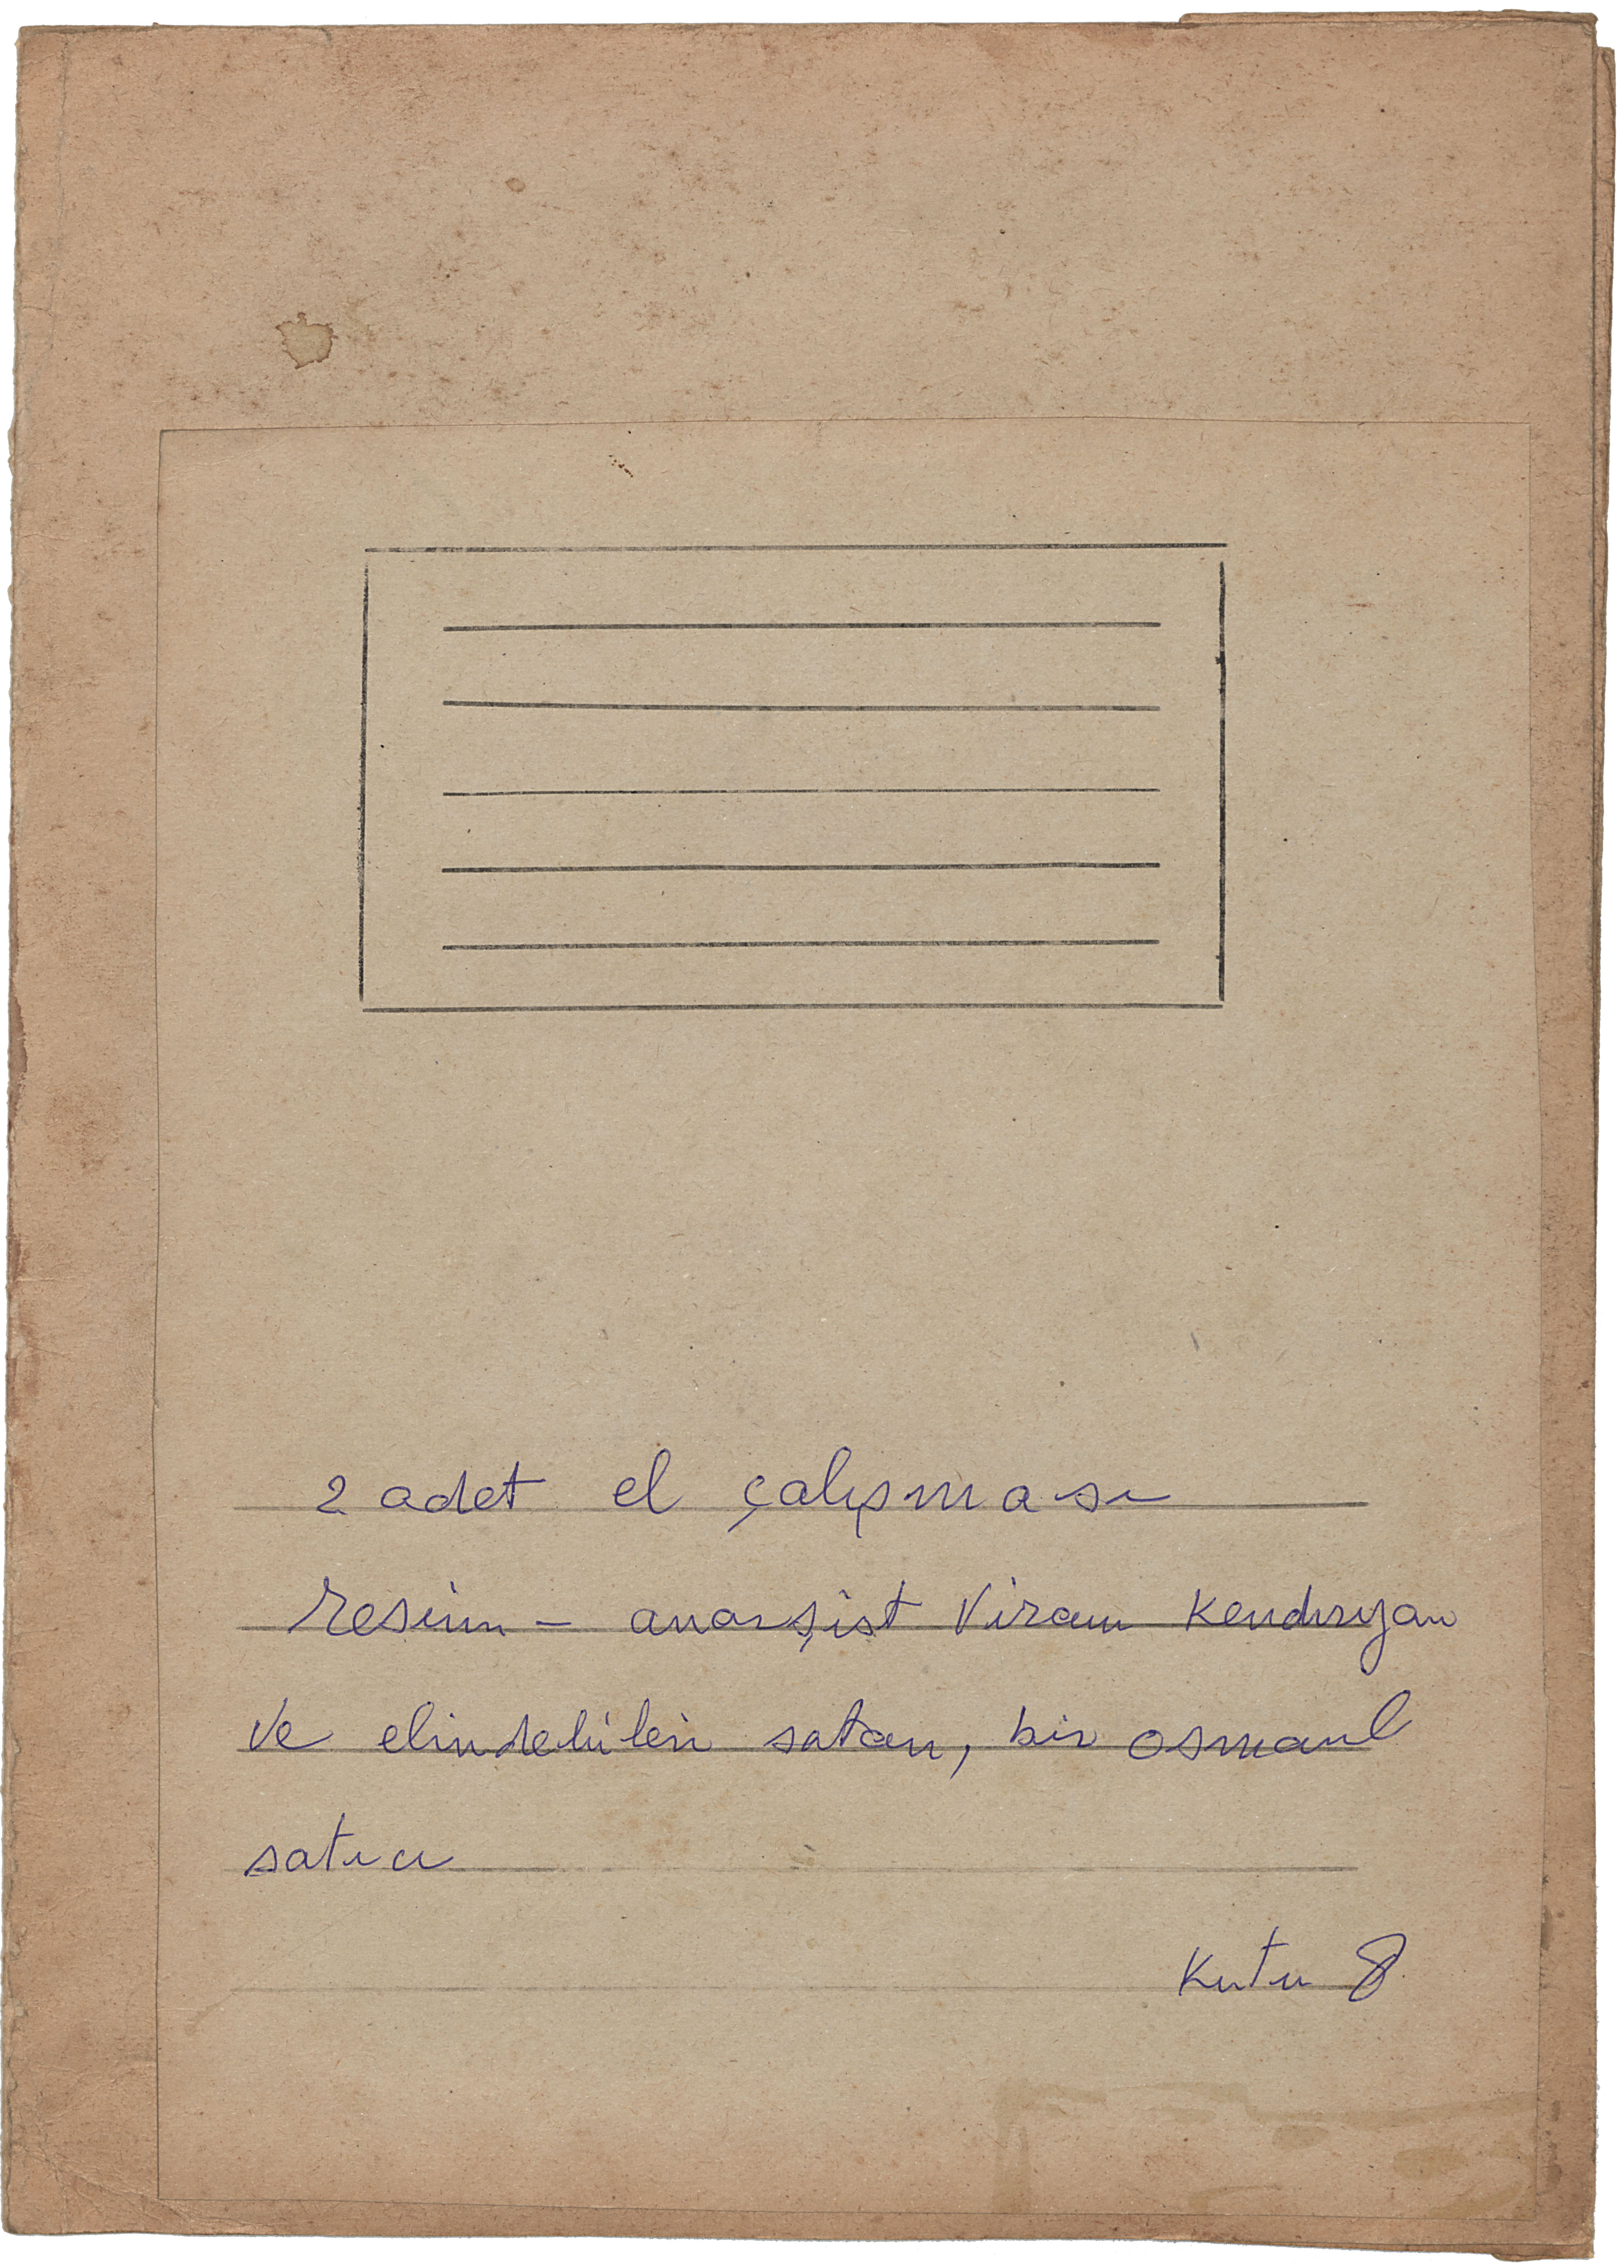 2 adet el çalışması
resim - anarşist Viram Kendiryan
ve elindekileri satan, bir osmanl
satıcı
Kutu 8